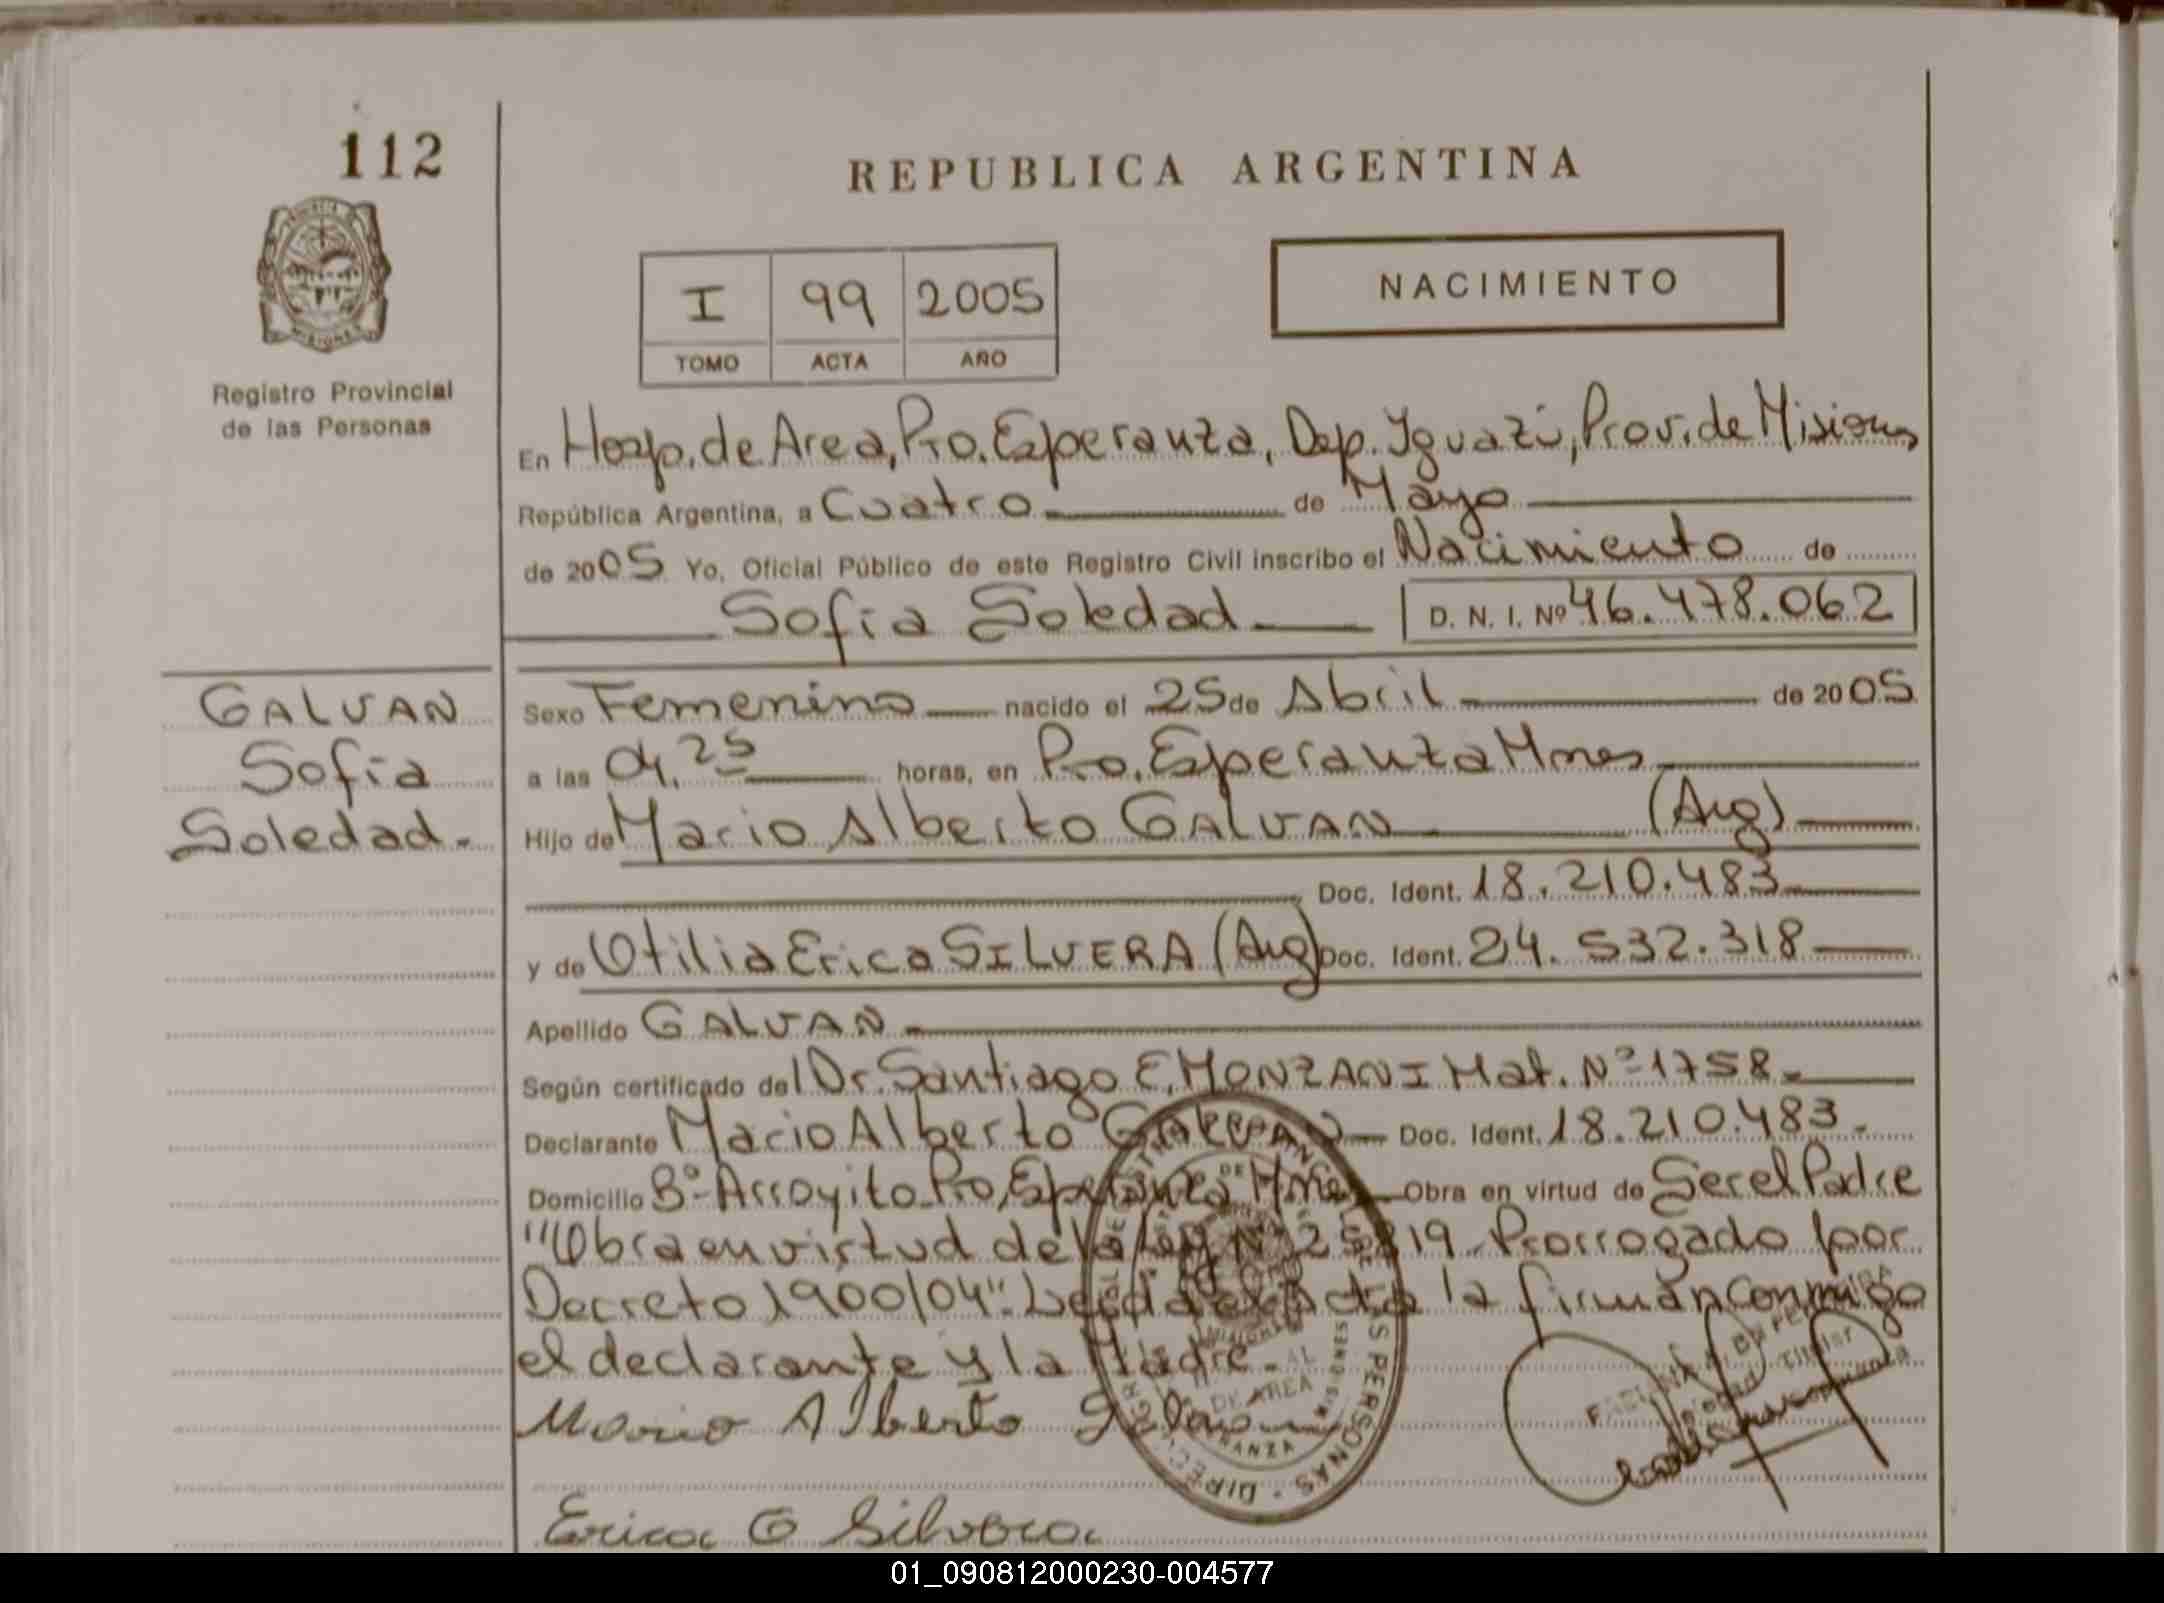 112
REPUBLICA ARGENTINA
I 99 2005
TOMO ACTA AÑO
NACIMIENTO
MISIONES
Registro Provincial
de las Personas
En Hosp. de Area, Pto. Esperanza, Dep. Iguazú, Prov. de Misiones
República Argentina, a Cuatro de Mayo
de 2005 Yo, Oficial Público de este Registro Civil inscribo el Nacimiento de
Sofia Soledad D. N. I. Nº 46.478.062
GALVAN
Sofia
Soledad.-
Sexo Femenino nacido el 25 de Abril de 2005
a las 04,25 horas, en Pto. Esperanza Mnes
Hijo de Mario Alberto GALVAN (Arg)
Doc. Ident. 18.210.483
y de Otilia Erica SILVERA (Arg) Doc. Ident. 24.532.318
Apellido GALVAN
Según certificado del Dr. Santiago E. MONZANI Mat. Nº 1758.-
Declarante Mario Alberto GALVAN Doc. Ident. 18.210.483.
Domicilio Bº-Arroyito Pto, Esperanza Mnes Obra en virtud de Ser el Padre
"Obra en virtud de la Ley Nº 25819 Prorrogado por
Decreto 1900/04". Leida el Acta la firman conmigo
el declarante y la Madre.-
Mario Alberto Galvan
Erica O Silvera
DE LAS PERSONAS
DE AREA
01_090812000230-004577